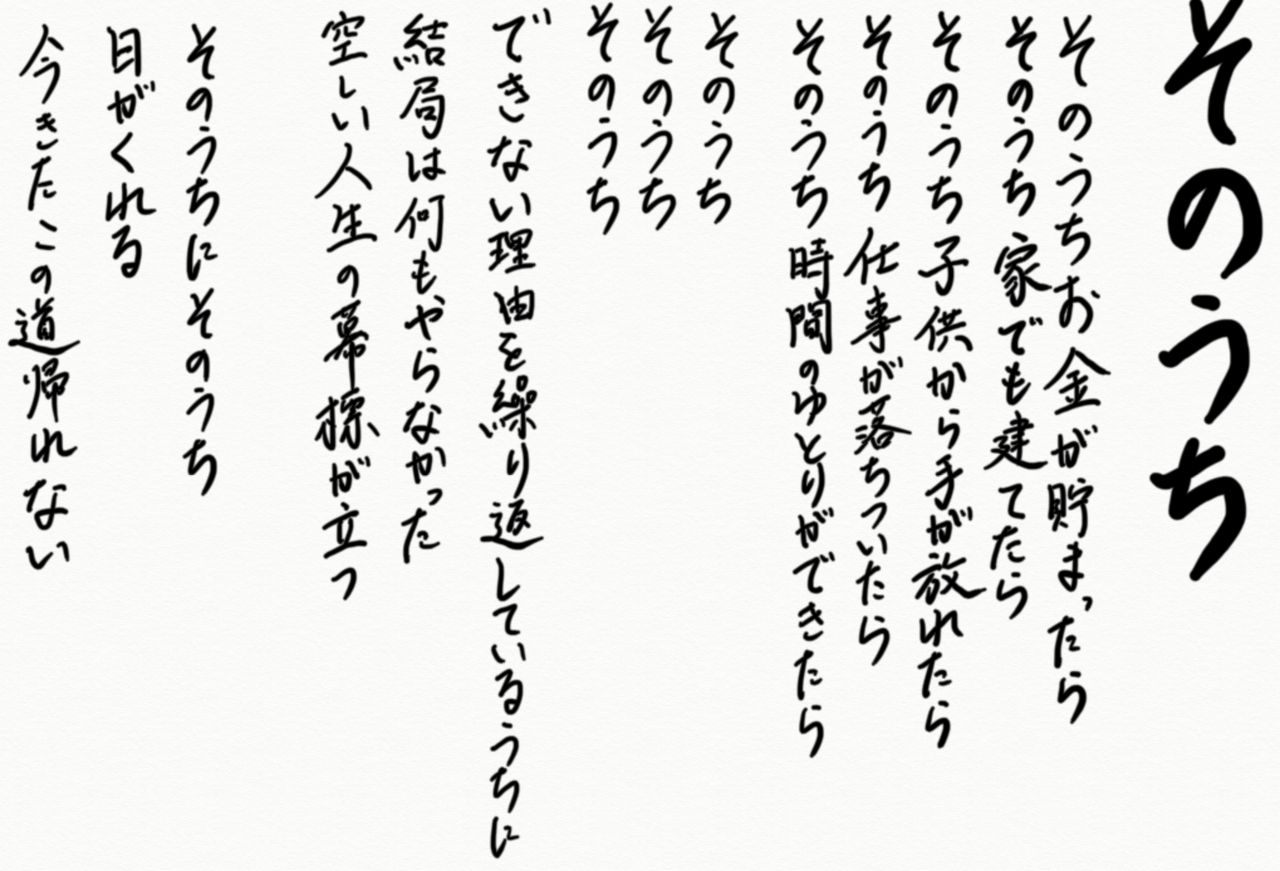 そのうち
そのうちお金が貯まったら
そのうち家でも建てたら
そのうち子供から手が放れたら
そのうち仕事が落ちついたら
そのうち時間のゆとりができたら
そのうち
そのうち
そのうち
できない理由を繰り返しているうちに
結局は何もやらなかった
空しい人生の幕探が立つ
そのうちにそのうち
日がくれる
今きたこの道帰れない